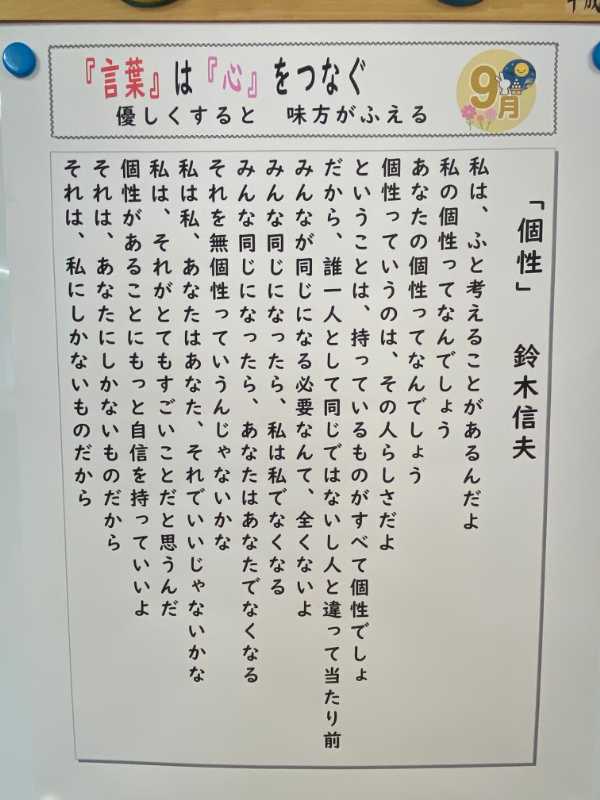 『言葉』は『心』をつなぐ
優しくすると　味方がふえる
9月
「個性」　鈴木信夫
私は、ふと考えることがあるんだよ
私の個性ってなんでしょう
あなたの個性ってなんでしょう
個性っていうのは、その人らしさだよ
ということは、持っているものがすべて個性でしょ
だから、誰一人として同じではないし人と違って当たり前
みんなが同じになる必要なんて、全くないよ
みんな同じになったら、私は私でなくなる
みんな同じになったら、あなたはあなたでなくなる
それを無個性っていうんじゃないかな
私は私、あなたはあなた、それでいいじゃないかな
私は、それがとてもすごいことだと思うんだ
個性があることにもっと自信を持っていいよ
それは、あなたにしかないものだから
それは、私にしかないものだから